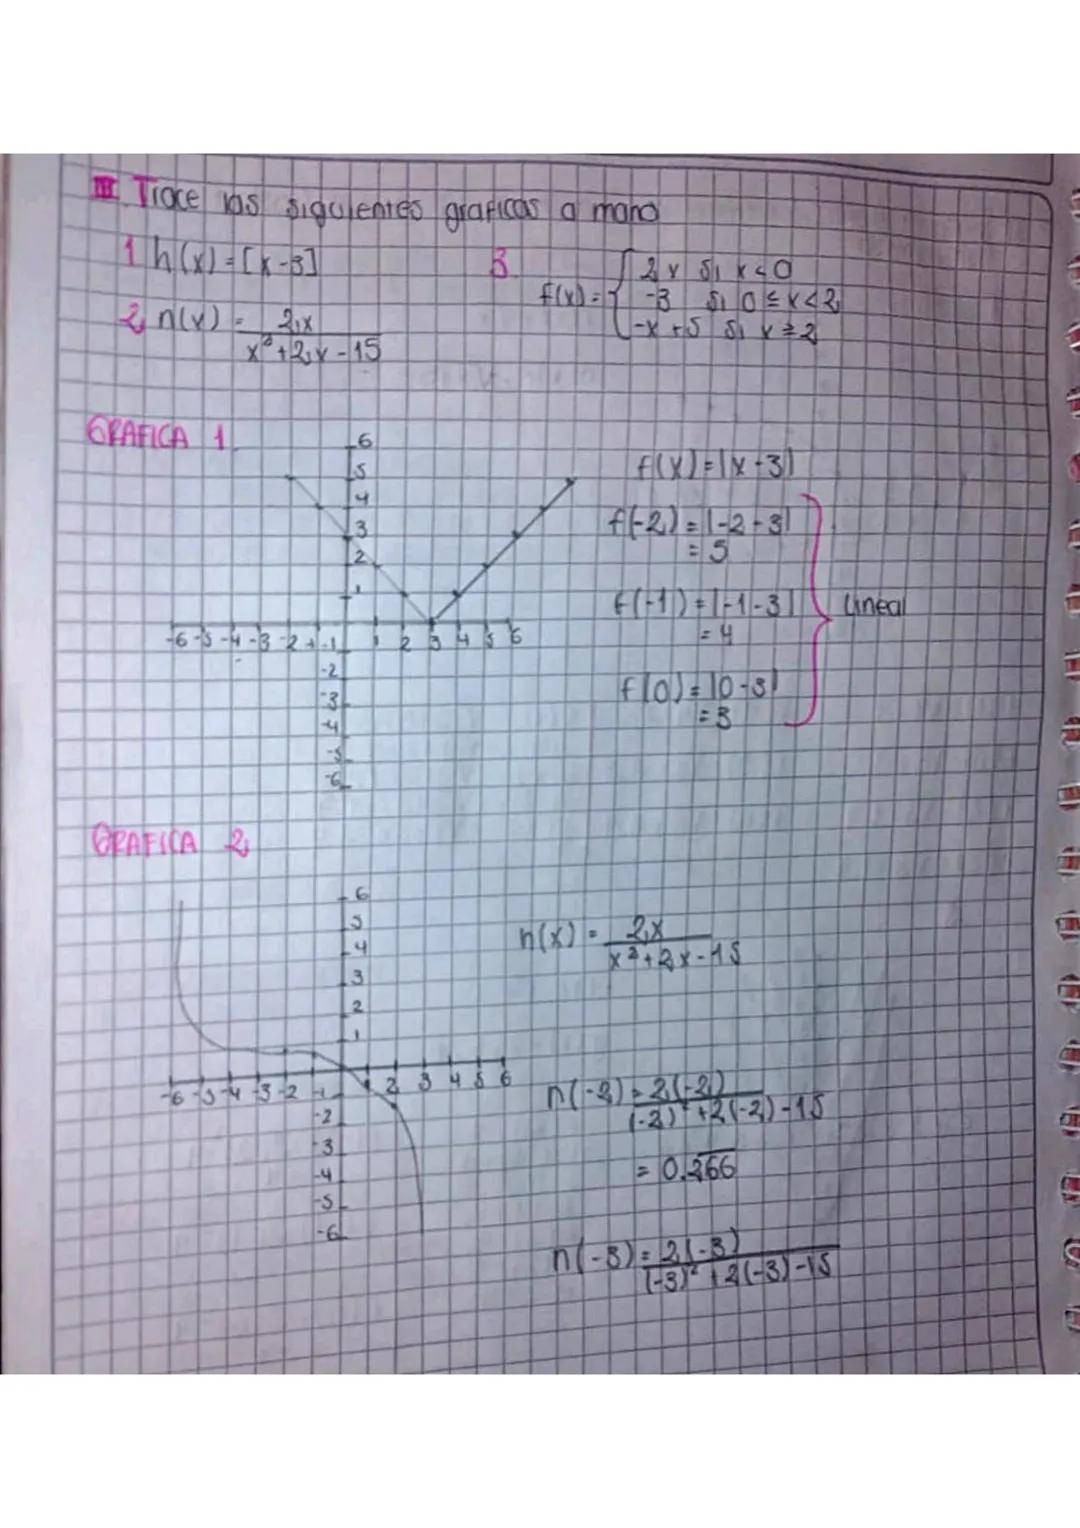 III. Trace las siguientes graficas a mano
1 h(x) = [x-3]
2 n(x) = 2x
x²+2x-15
3
f(x) = { 2x si x<0
-3 si 0≤x<2
-x+5 si x≥2
GRAFICA 1
6
5
4
3
2
1
-6 -5 -4 -3 -2 -1 -1 1 2 3 4 5 6
-2
-3
-4
-5
-6
f(x)=|x-3|
f(-2) = |-2-3|
= 5
f(-1) = |-1-3|
= 4
f(0) = |0-3|
= 3
Lineal
GRAFICA 2
6
5
4
3
2
1
-6 -5 -4 -3 -2 -1 2 3 4 5 6
-2
-3
-4
-5
-6
n(x) = 2x
x²+2x-15
n(-2) = 2(-2)
(-2)²+2(-2)-15
= 0.266
n(-3) = 2(-3)
(-3)²+2(-3)-15